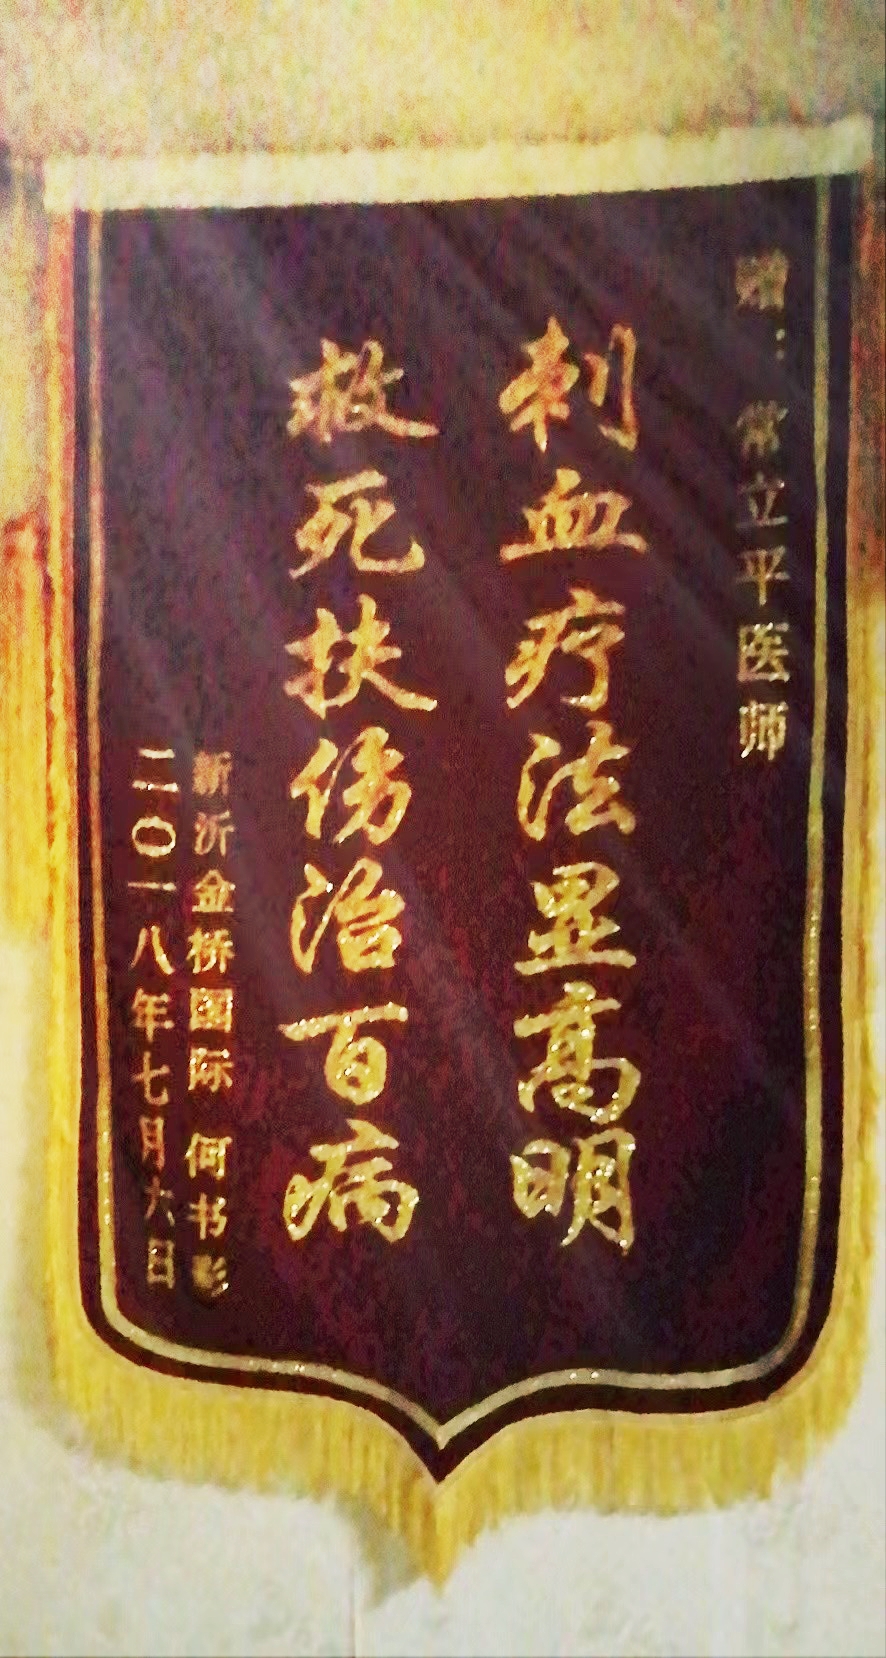 赠：常立平医师
刺血疗法显高明
救死扶伤治百病
新沂金桥国际 何书彰
二〇一八年七月六日